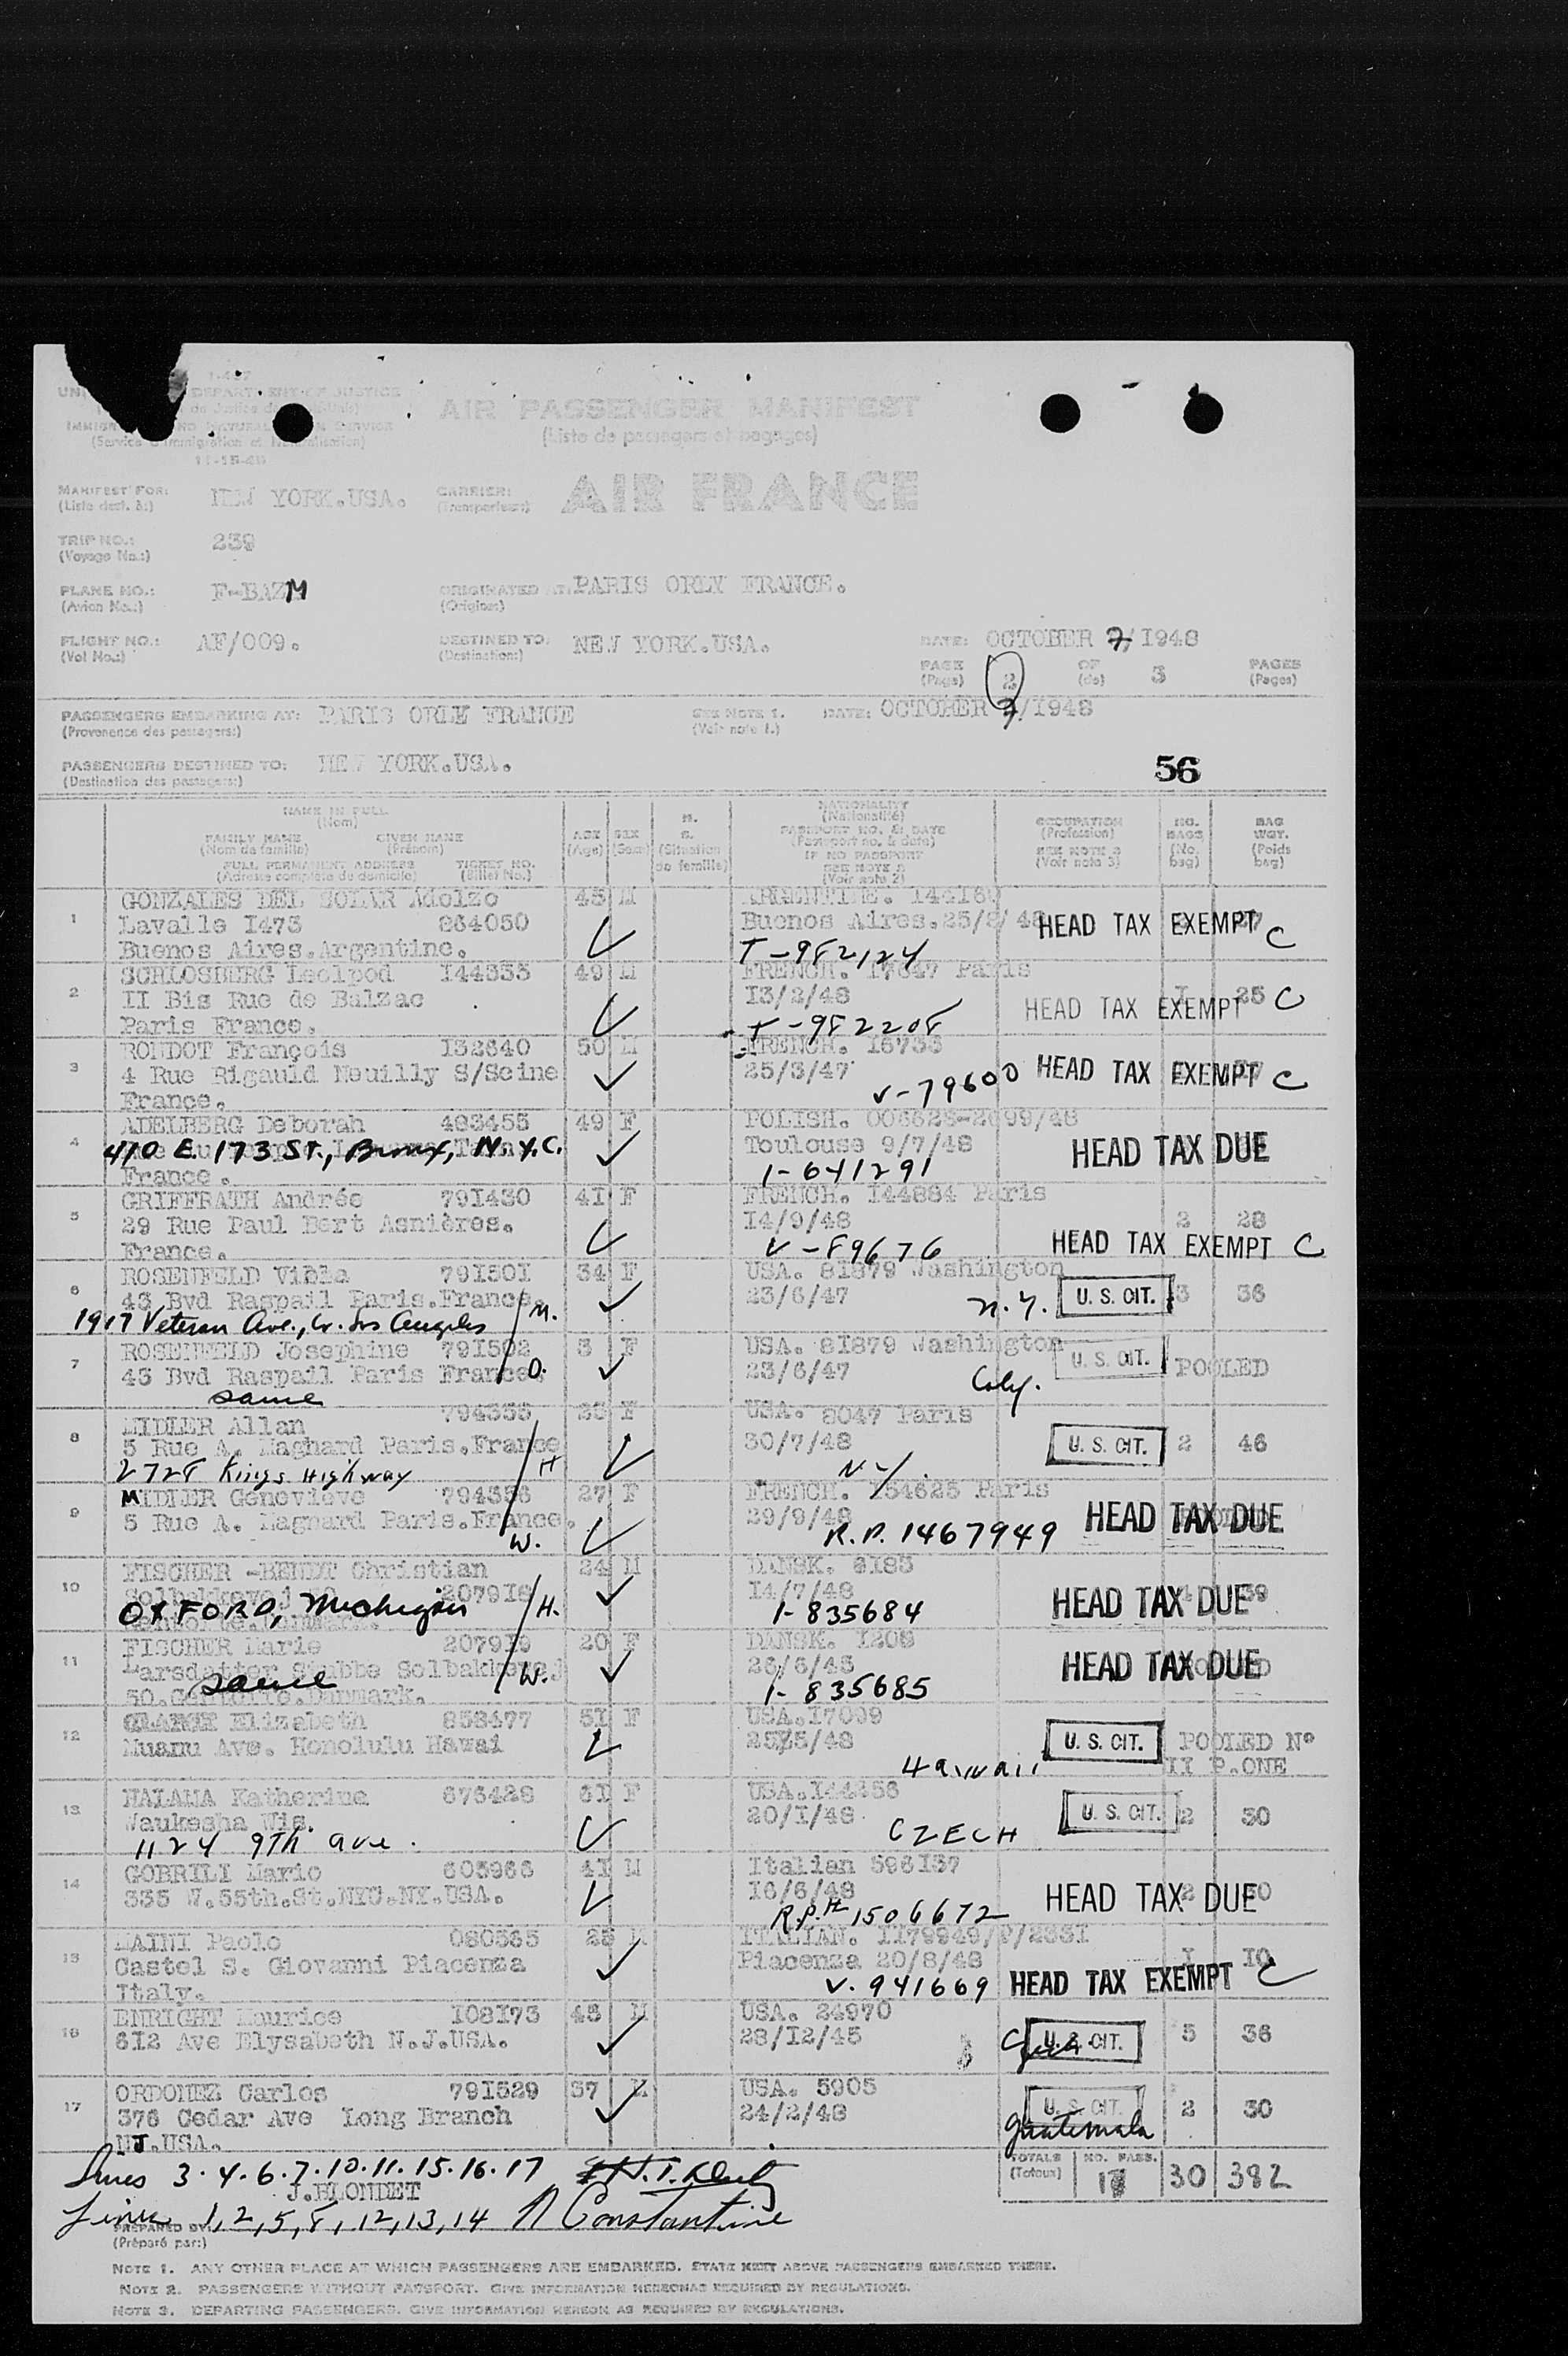 I-467
DEPARTMENT OF JUSTICE
(Service d'immigration et Naturalisation)
11-15-46
AIR PASSENGER MANIFEST
(Liste de passagers et bagages)
MANIFEST FOR: NEW YORK.USA. CARRIER: AIR FRANCE
(Liste dest. à:) (Transporteur:)
TRIP NO.: 239
(Voyage No.:)
PLANE NO.: F-BAZM ORIGINATED AT: PARIS ORLY FRANCE.
(Avion No.:) (Origine:)
FLIGHT NO.: AF/009. DESTINED TO: NEW YORK.USA. DATE: OCTOBER 7/1948
(Vol No.:) (Destination:) PAGE 2 OF 3 PAGES
(Page) (de) (Pages)
PASSENGERS EMBARKING AT: PARIS ORLY FRANCE SEE NOTE 1. DATE: OCTOBER 7/1948
(Provenance des passagers:) (Voir note 1.)
PASSENGERS DESTINED TO: NEW YORK.USA. 56
(Destination des passagers:)
NAME IN FULL
(Nom)
FAMILY NAME GIVEN NAME
(Nom de famille) (Prénom)
FULL PERMANENT ADDRESS TICKET NO.
(Adresse complète du domicile) (Billet No.)
AGE
(Age)
SEX
(Sexe)
M.
S.
(Situation
de famille)
NATIONALITY
(Nationalité)
PASSPORT NO. & DATE
(Passeport no. & date)
IF NO PASSPORT
SEE NOTE 2
(Voir note 2)
OCCUPATION
(Profession)
SEE NOTE 3
(Voir note 3)
NO.
BAGS
(No.
bag)
BAG
WGT.
(Poids
bag)
1 GONZALES DEL SOLAR Adolzo 45 M ARGENTINE. 14416
Lavalle I473 264050 Buenos Aires.25/2/48 HEAD TAX EXEMPT C
Buenos Aires.Argentine. T-982124
2 SCHLOSBURG Leolpod I44333 49 M FRENCH. 17647 Paris
II Bis Rue de Balzac I3/2/48 I 25 HEAD TAX EXEMPT C
Paris France. T-982208
3 RONDOT François I32640 50 M FRENCH. I6733
4 Rue Rigauld Neuilly S/Seine 25/3/47 HEAD TAX EXEMPT C
France. V-79600
4 ADELBERG Deborah 493455 49 F POLISH. 006628-2699/48
410 E. 173 ST., Bronx, N.Y.C. Toulouse 9/7/48 HEAD TAX DUE
France. 1-641291
5 GRIFFRATH Andrée 791430 4I F FRENCH. I44884 Paris
29 Rue Paul Bert Asnières. I4/9/48 2 28
France. V-89676 HEAD TAX EXEMPT C
6 ROSENFELD Vibla 79I50I 34 F USA. 81879 Washington
43 Bvd Raspail Paris.France. 23/6/47 N.Y. U. S. CIT. 3 36
1917 Veteran Ave., W. Los Angeles M.
7 ROSENFELD Josephine 79I502 3 F USA. 81879 Washington
43 Bvd Raspail Paris France. D. 23/6/47 U. S. CIT. POOLED
same Calif.
8 MIDLER Allan 794355 F USA. 8047 Paris
5 Rue A. Maghard Paris.France 30/7/48 U. S. CIT. 2 46
2728 Kings Highway H N.Y.
9 MIDLER Geneviève 794356 27 F FRENCH. I54625 Paris
5 Rue A. Magnard Paris.France. 29/9/48 HEAD TAX DUE
W. R.P. 1467949
10 FISCHER -BENDT Christian 24 M DANSK. 6I83
207918 I4/7/48
OXFORD, Michigan H. 1-835684 HEAD TAX DUE
11 FISCHER Marie 207919 20 F DANSK. I208
Larsdatter Stubbe Solbakkevej 26/6/45 HEAD TAX DUE
same W. 1-835685
50.Gentofte.Danmark.
12 Elizabeth 853477 5I F USA.I7009
Nuanu Ave. Honolulu Hawai 25/5/48 U. S. CIT. POOLED N°
Hawaii II P.ONE
13 HALAMA Katherine 676428 6I F USA.I44356
Waukesha Wis. 20/I/48 U. S. CIT. 2 30
1124 9TH Ave. CZECH
14 GORRILI Mario 605966 4I M Italian 596I37
335 W.55th.St.NYC.NY.USA. I6/6/48 HEAD TAX DUE
R.P.# 1506672
15 MAINI Paolo 080365 25 M ITALIAN. II79949/P/233I
Castel S. Giovanni Piacenza Piacenza 20/8/48 I I0
Italy. V. 941669 HEAD TAX EXEMPT C
16 ENRIGHT Maurice I08I73 48 M USA. 24970
6I2 Ave Elysabeth N.J.USA. 28/I2/45 U. S. CIT. 5 36
17 ORDONEZ Carlos 79I529 37 M USA. 5905
376 Cedar Ave Long Branch 24/2/48 U. S. CIT. 2 30
NJ.USA. Guatemala
TOTALS NO. PASS.
(Totaux) 17 30 392
Lines 3.4.6.7.10.11.15.16.17
J.BLONDET
Lines 1,2,5,8,12,13,14 N Constantine
PREPARED BY:
(Préparé par:)
NOTE 1. ANY OTHER PLACE AT WHICH PASSENGERS ARE EMBARKED. STATE NEXT ABOVE PASSENGERS EMBARKED THERE.
NOTE 2. PASSENGERS WITHOUT PASSPORT. GIVE INFORMATION HEREON AS REQUIRED BY REGULATIONS.
NOTE 3. DEPARTING PASSENGERS. GIVE INFORMATION HEREON AS REQUIRED BY REGULATIONS.